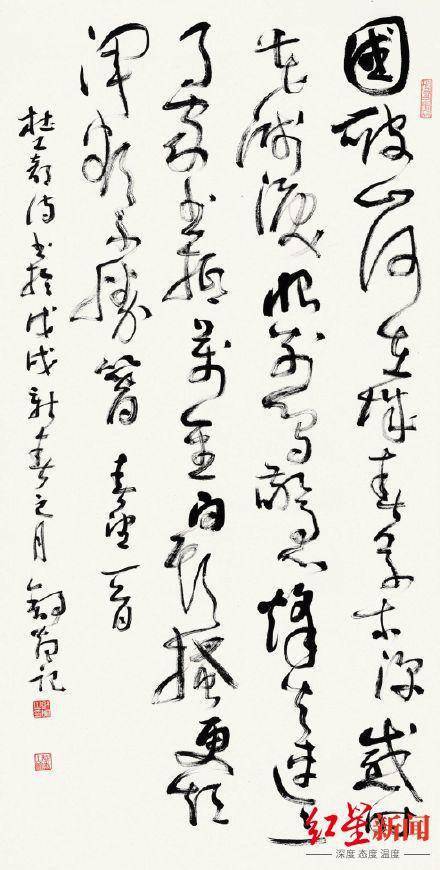 國破山河在城春草木深感時
花濺淚恨別鳥驚心烽火連三
月家書抵萬金白頭搔更短
渾欲不勝簪 春望一首
杜工部诗書於戊戌新春之月 記
红星新闻
深度 态度 温度